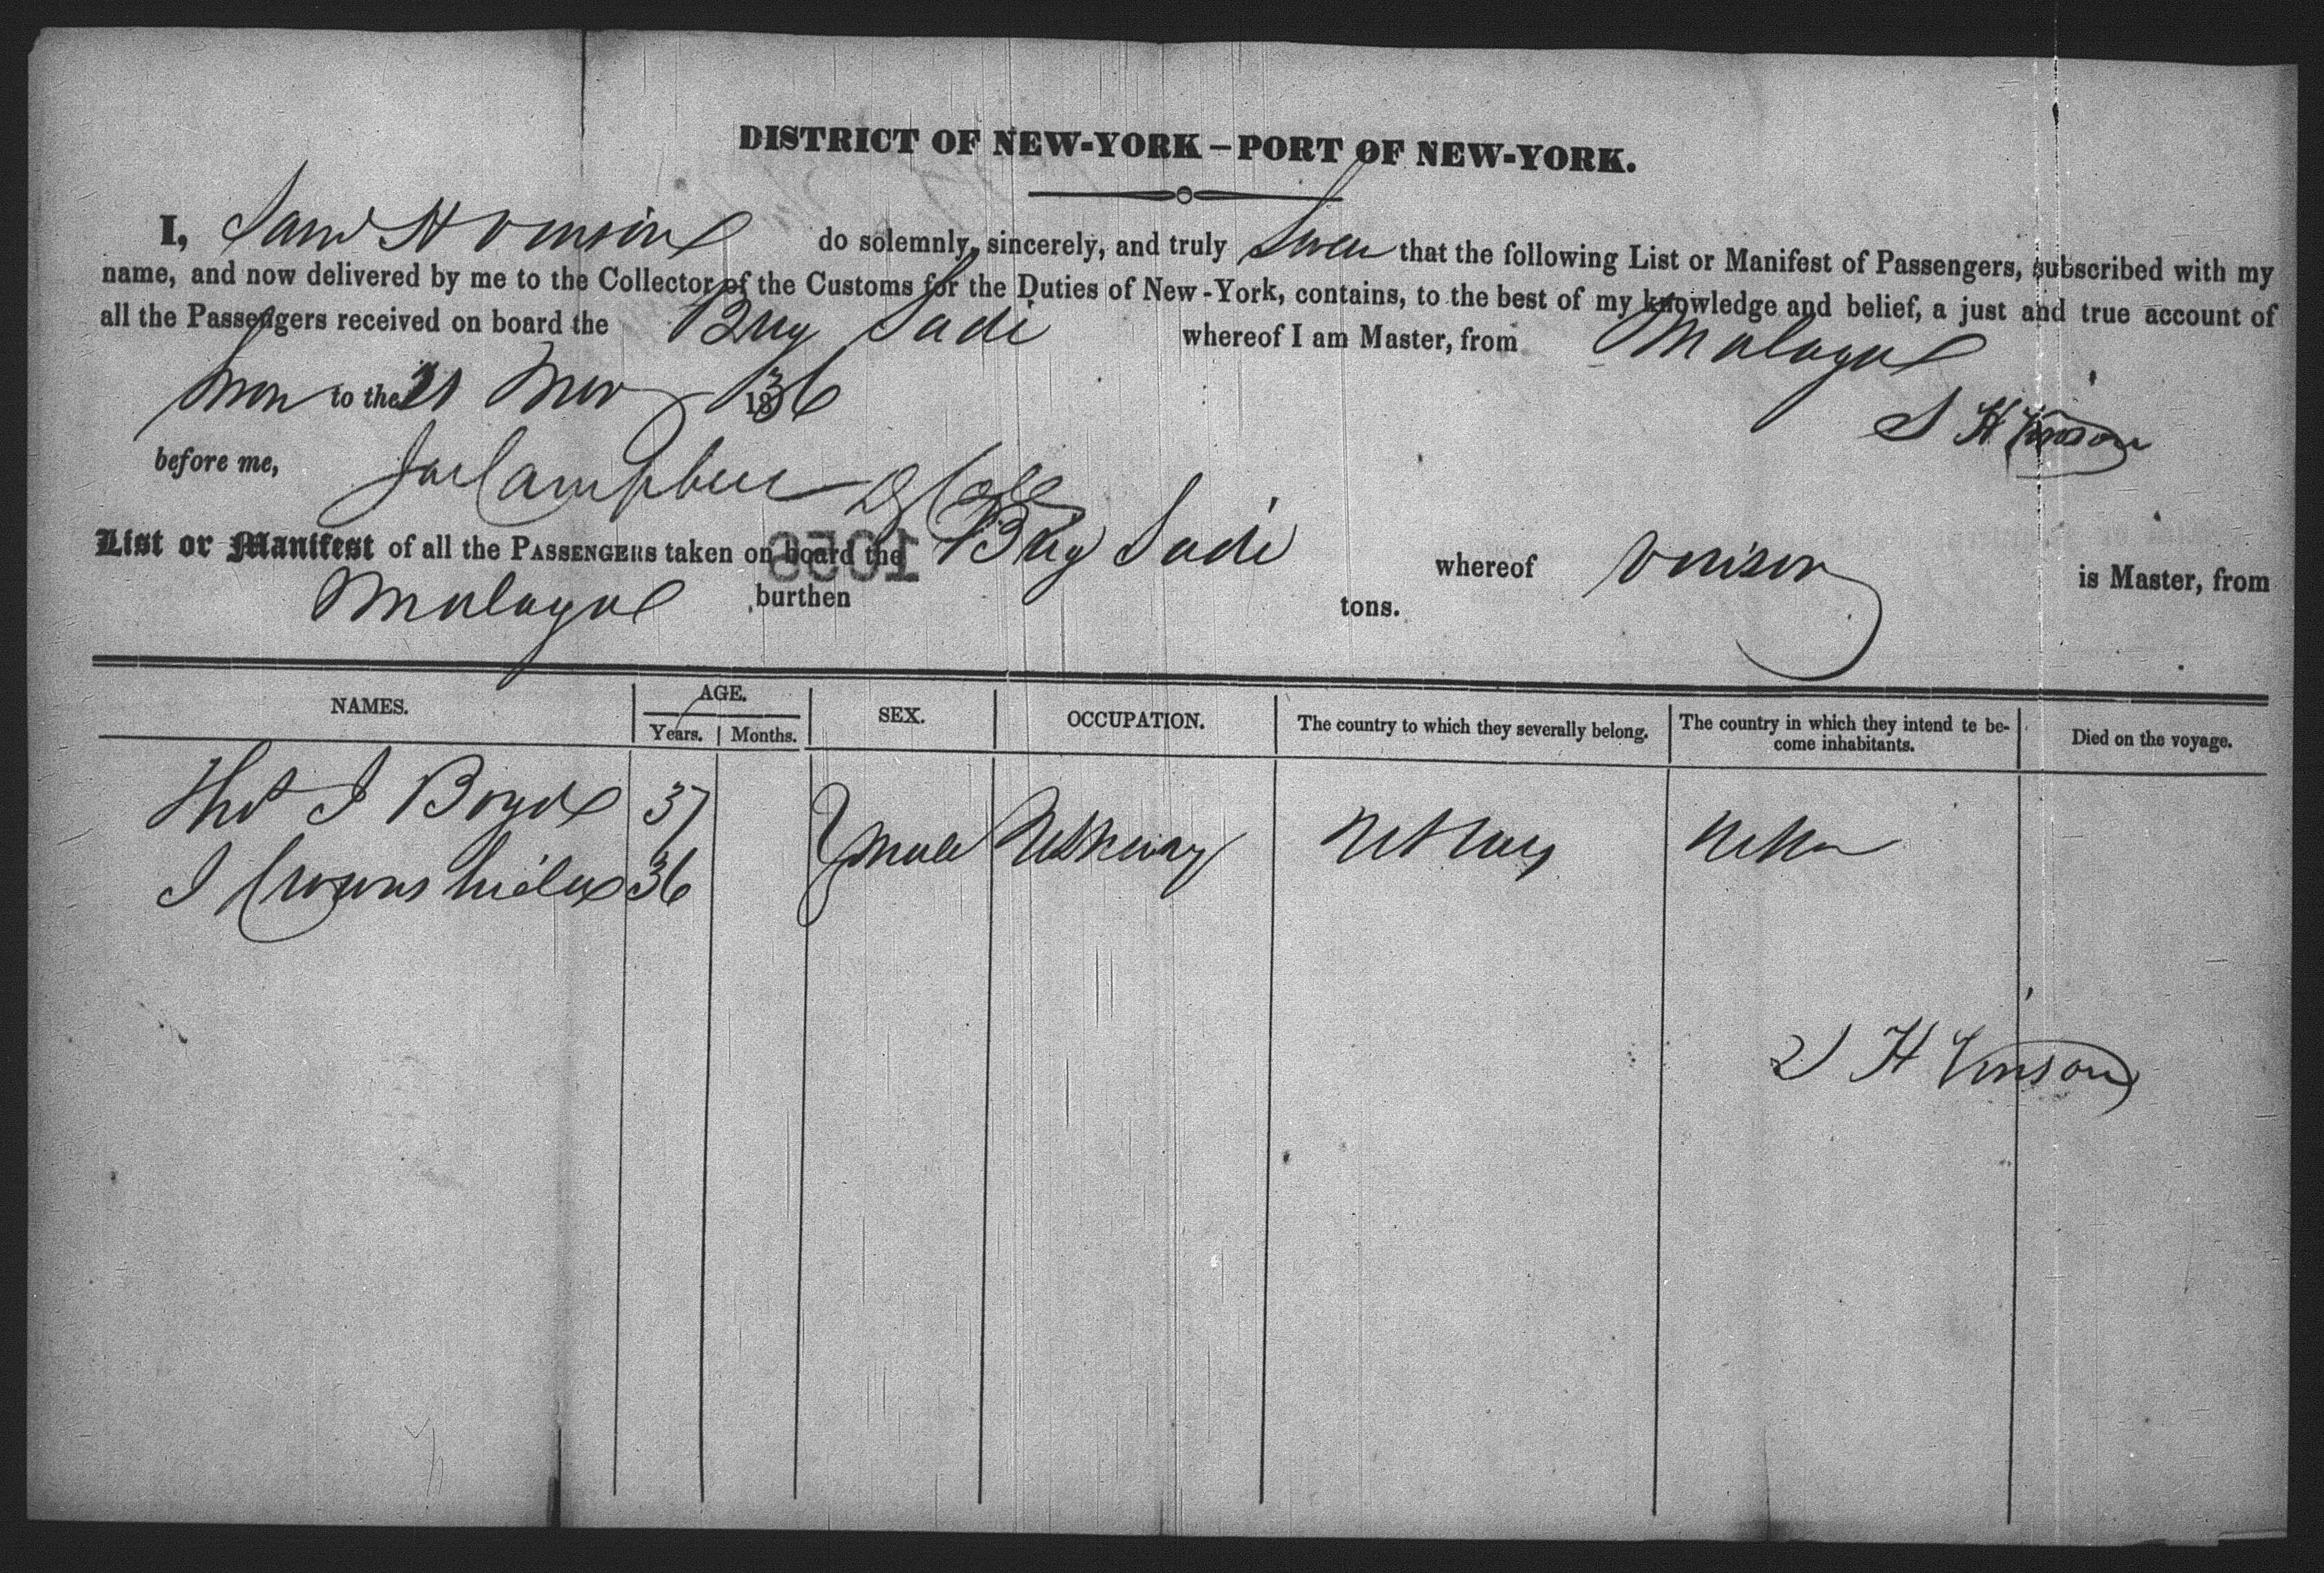 DISTRICT OF NEW-YORK – PORT OF NEW-YORK.
I, Saml H Vinson do solemnly, sincerely, and truly Swear that the following List or Manifest of Passengers, subscribed with my
name, and now delivered by me to the Collector of the Customs for the Duties of New-York, contains, to the best of my knowledge and belief, a just and true account of
all the Passengers received on board the Brig Sadi whereof I am Master, from Malaga
to the 21 Nov 1836
S H Vinson
before me, Campbell
List or Manifest of all the PASSENGERS taken on board the Brig Sadi whereof Vinson is Master, from
Malaga burthen tons.
NAMES. AGE. SEX. OCCUPATION. The country to which they severally belong. The country in which they intend te become inhabitants. Died on the voyage.
Years. Months.
Thos J Boyd 37
male
J 36
S H Vinson